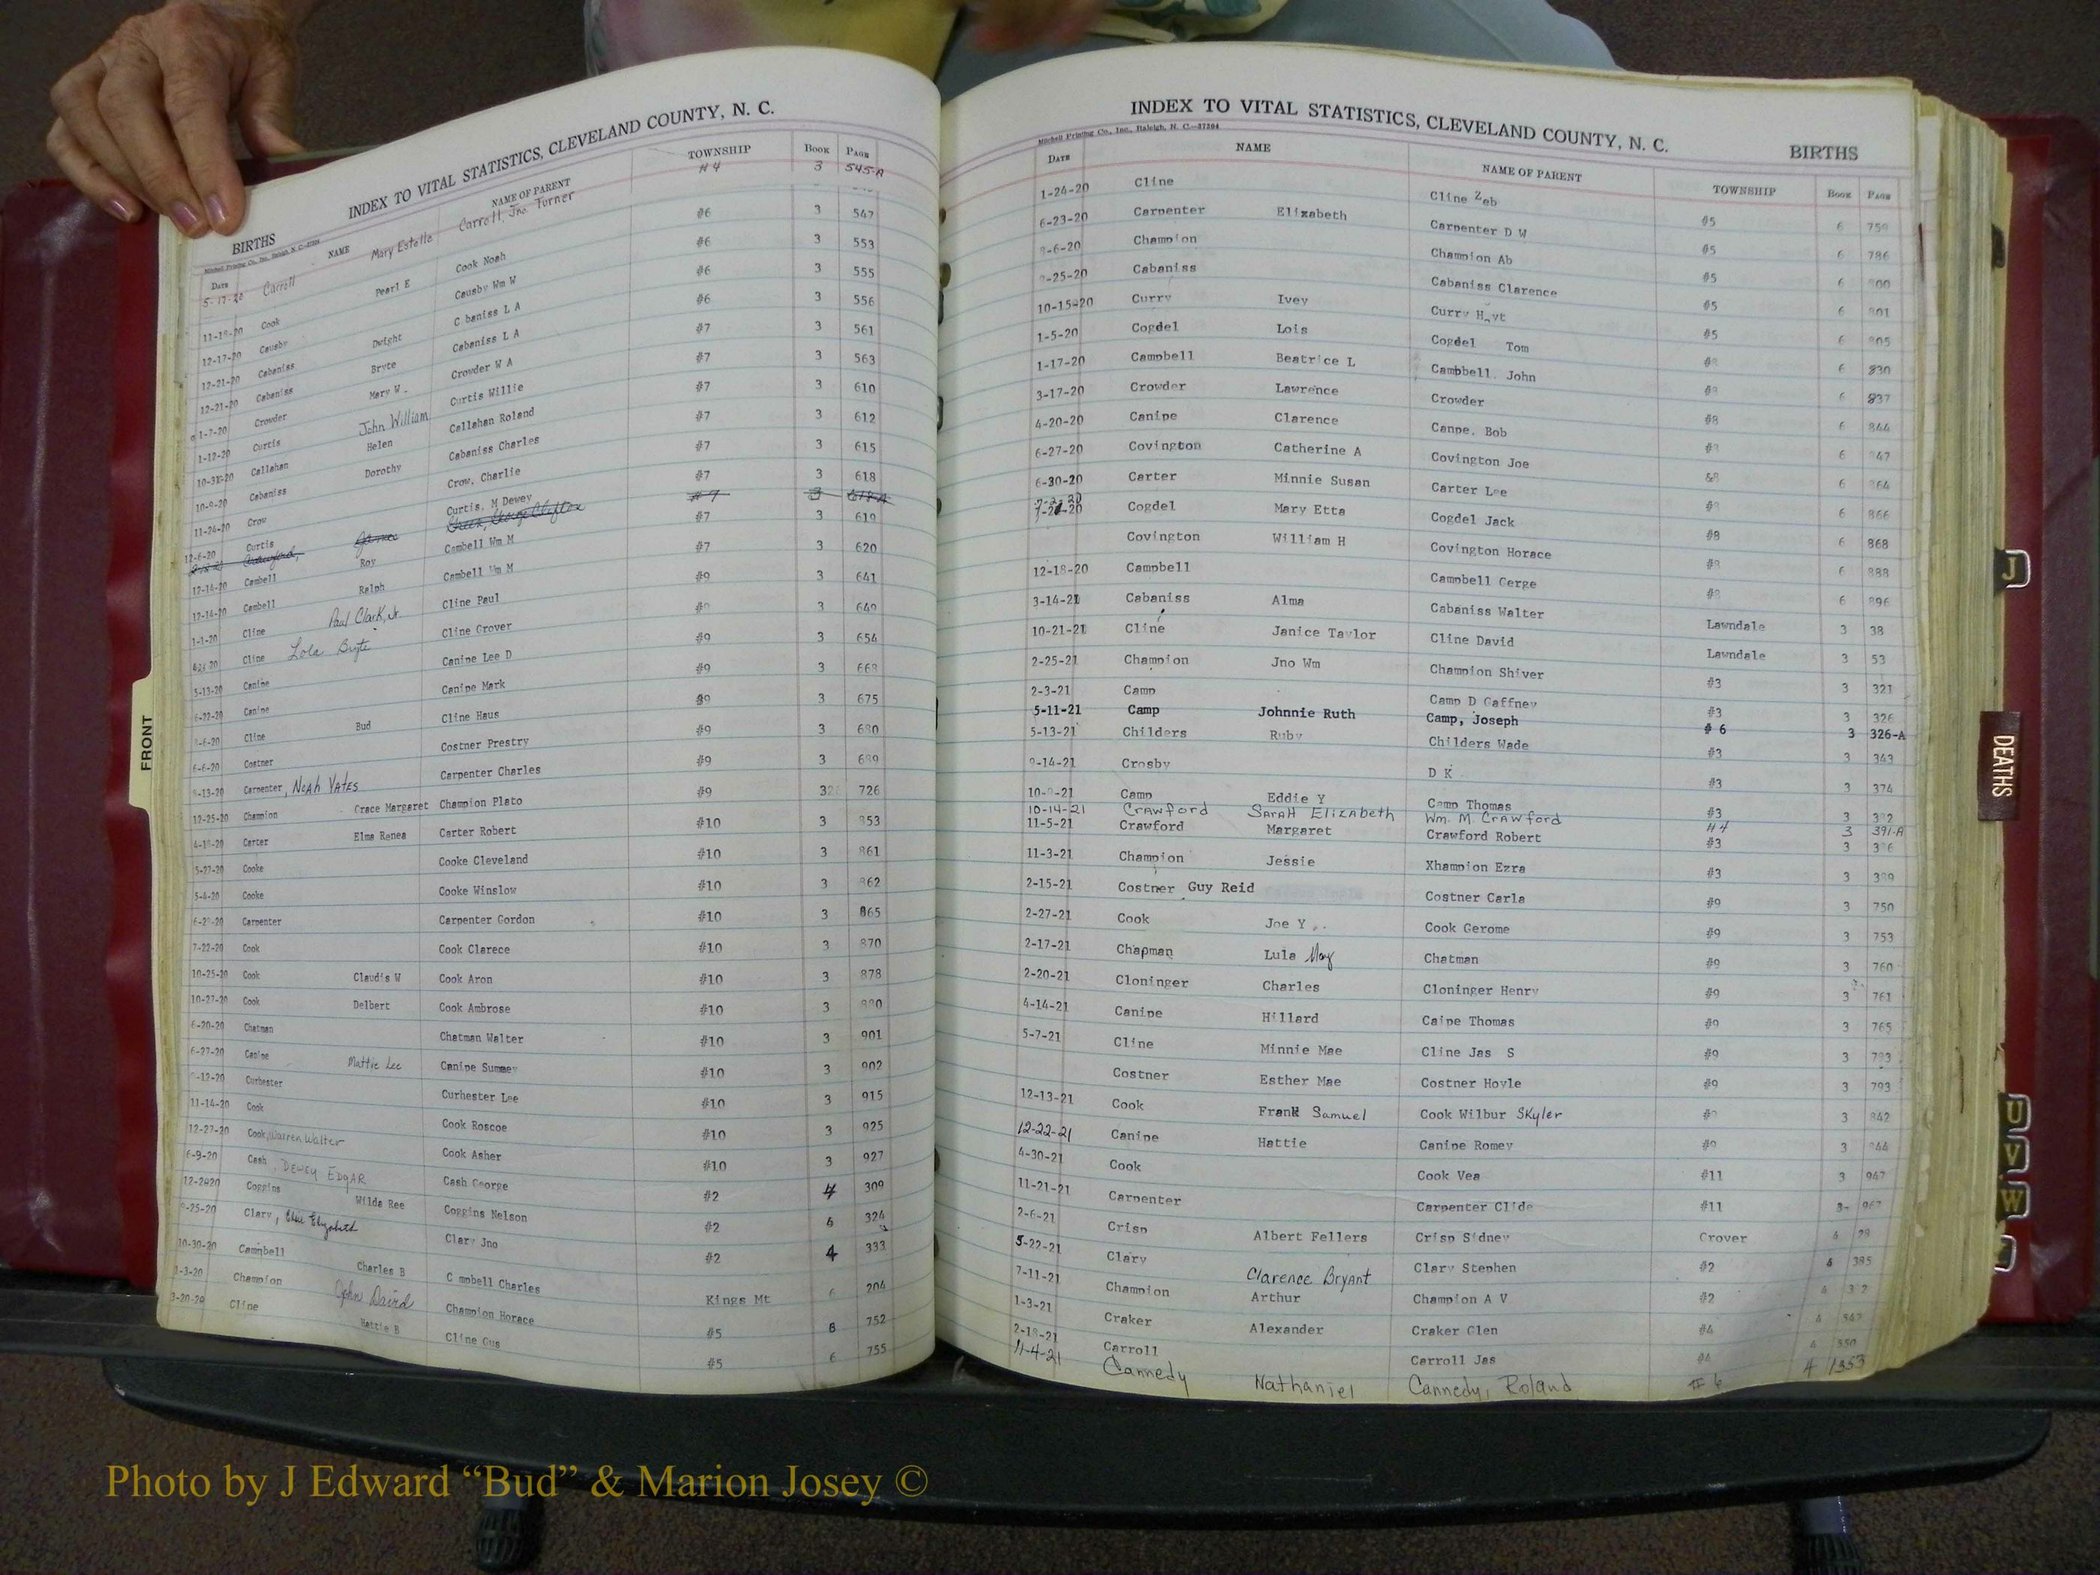 INDEX TO VITAL STATISTICS, CLEVELAND COUNTY, N. C.
BIRTHS
DATE NAME NAME OF PARENT TOWNSHIP BOOK PAGE
5-17-20 Carroll Mary Estelle Carroll, Jno Turner #4 3 545-A
11-18-20 Cook Pearl E Cook Noah #6 3 547
12-17-20 Causby Causby Wm W #6 3 553
12-21-20 Cabaniss Dwight C baniss L A #6 3 555
12-21-20 Cabaniss Bryte Cabaniss L A #6 3 556
1-7-20 Crowder Mary W. Crowder W A #7 3 561
1-12-20 Curtis John William Curtis Willie #7 3 563
10-31-20 Callahan Helen Callahan Roland #7 3 610
10-9-20 Cabaniss Dorothy Cabaniss Charles #7 3 612
11-24-20 Crow Crow, Charlie #7 3 615
12-6-20 Curtis Curtis, M Dewey #7 3 618
Crawford, James Green, George Clifton #7 3 618-A
12-14-20 Cambell Roy Cambell Wm M #7 3 619
12-14-20 Cambell Ralph Cambell Wm M #7 3 620
1-1-20 Cline Paul Clark, Jr. Cline Paul #9 3 641
Cline Lola Bryte Cline Grover 3 649
5-13-20 Canipe Canipe Lee D #9 3 654
6-22-20 Canipe Canipe Mark #9 3 668
Cline Bud Cline Haus #9 3 675
6-6-20 Costner Costner Prestry #9 3 680
Carpenter, Noah Yates Carpenter Charles #9 3 689
12-25-20 Champion Grace Margaret Champion Plato #9 726
Carter Elma Renea Carter Robert #10 3 853
5-27-20 Cooke Cooke Cleveland #10 3 861
5-4-20 Cooke Cooke Winslow #10 3 862
Carpenter Carpenter Gordon #10 3 865
7-22-20 Cook Cook Clarece #10 3 870
10-25-20 Cook Claudis W Cook Aron #10 3 878
10-27-20 Cook Delbert Cook Ambrose #10 3
6-20-20 Chatman Chatman Walter #10 3 901
6-27-20 Canipe Mattie Lee Canipe Summey #10 3 902
Curhester Curhester Lee #10 3 915
11-14-20 Cook Cook Roscoe #10 3 925
12-27-20 Cook, Warren Walter Cook Asher #10 3 927
6-9-20 Cash, Dewey Edgar Cash George #2 4 309
Coggins Wilda Ree Coggins Nelson #2 324
9-25-20 Clary, Elsie Elizabeth Clary Jno #2 4 333
10-30-20 Campbell Charles B C mpbell Charles Kings Mt 6 204
1-3-20 Champion John Daird Champion Horace #5 6 752
3-20-20 Cline Hattie B Cline Gus #5 6 755
INDEX TO VITAL STATISTICS, CLEVELAND COUNTY, N. C.
Mitchell Printing Co., Inc., Raleigh, N. C.—37204
BIRTHS
DATE NAME NAME OF PARENT TOWNSHIP BOOK PAGE
1-24-20 Cline Cline Zeb #5 6 759
6-23-20 Carpenter Elizabeth Carpenter D W #5 6 786
Champion Champion Ab #5 6
Cabaniss Cabaniss Clarence #5 6 801
10-15-20 Curry Ivey Curry Hoyt #5 6 805
1-5-20 Cogdel Lois Cogdel Tom 6 830
1-17-20 Campbell Beatrice L Campbell. John 6 837
3-17-20 Crowder Lawrence Crowder #8 6 844
4-20-20 Canipe Clarence Canpe. Bob 6 847
6-27-20 Covington Catherine A Covington Joe &8 6 864
6-30-20 Carter Minnie Susan Carter Lee 6 866
Cogdel Mary Etta Cogdel Jack #8 6 868
Covington William H Covington Horace 6 888
12-18-20 Campbell Campbell Gerge 6 896
3-14-21 Cabaniss Alma Cabaniss Walter Lawndale 3 38
10-21-21 Cline Janice Taylor Cline David Lawndale 3 53
2-25-21 Champion Jno Wm Champion Shiver #3 3 321
2-3-21 Camp Camp D Gaffney #3 3 326
5-11-21 Camp Johnnie Ruth Camp, Joseph # 6 3 326-A
5-13-21 Childers Ruby Childers Wade #3 3 343
9-14-21 Crosby D K #3 3 374
Camp Eddie Y Camp Thomas #3 3
10-14-21 Crawford Sarah Elizabeth Wm. M. Crawford #4 3 391-A
11-5-21 Crawford Margaret Crawford Robert #3 3
11-3-21 Champion Jessie Xhampion Ezra #3 3 399
2-15-21 Costner Guy Reid Costner Carla #9 3 750
2-27-21 Cook Joe Y Cook Gerome #9 3 753
2-17-21 Chapman Lula May Chatman #9 3 760
2-20-21 Cloninger Charles Cloninger Henry #9 3 761
4-14-21 Canipe Hillard Caipe Thomas #9 3 765
5-7-21 Cline Minnie Mae Cline Jas S #9 3
Costner Esther Mae Costner Hoyle #9 3 793
12-13-21 Cook Frank Samuel Cook Wilbur Skyler 3 842
12-22-21 Canipe Hattie Canipe Romey #9 3 844
4-30-21 Cook Cook Vea #11 3 947
11-21-21 Carpenter Carpenter Clide #11
2-6-21 Crisp Albert Fellers Crisp Sidney Grover 4 28
5-22-21 Clary Clarence Bryant Clary Stephen #2 385
7-11-21 Champion Arthur Champion A V #2 4
1-3-21 Craker Alexander Craker Glen #4 4 347
2-18-21 Carroll Carroll Jas #4 4 350
11-4-21 Cannedy Nathaniel Cannedy, Roland # 6 4 1353
FRONT
J
DEATHS
U
V
W
Photo by J Edward “Bud” & Marion Josey ©